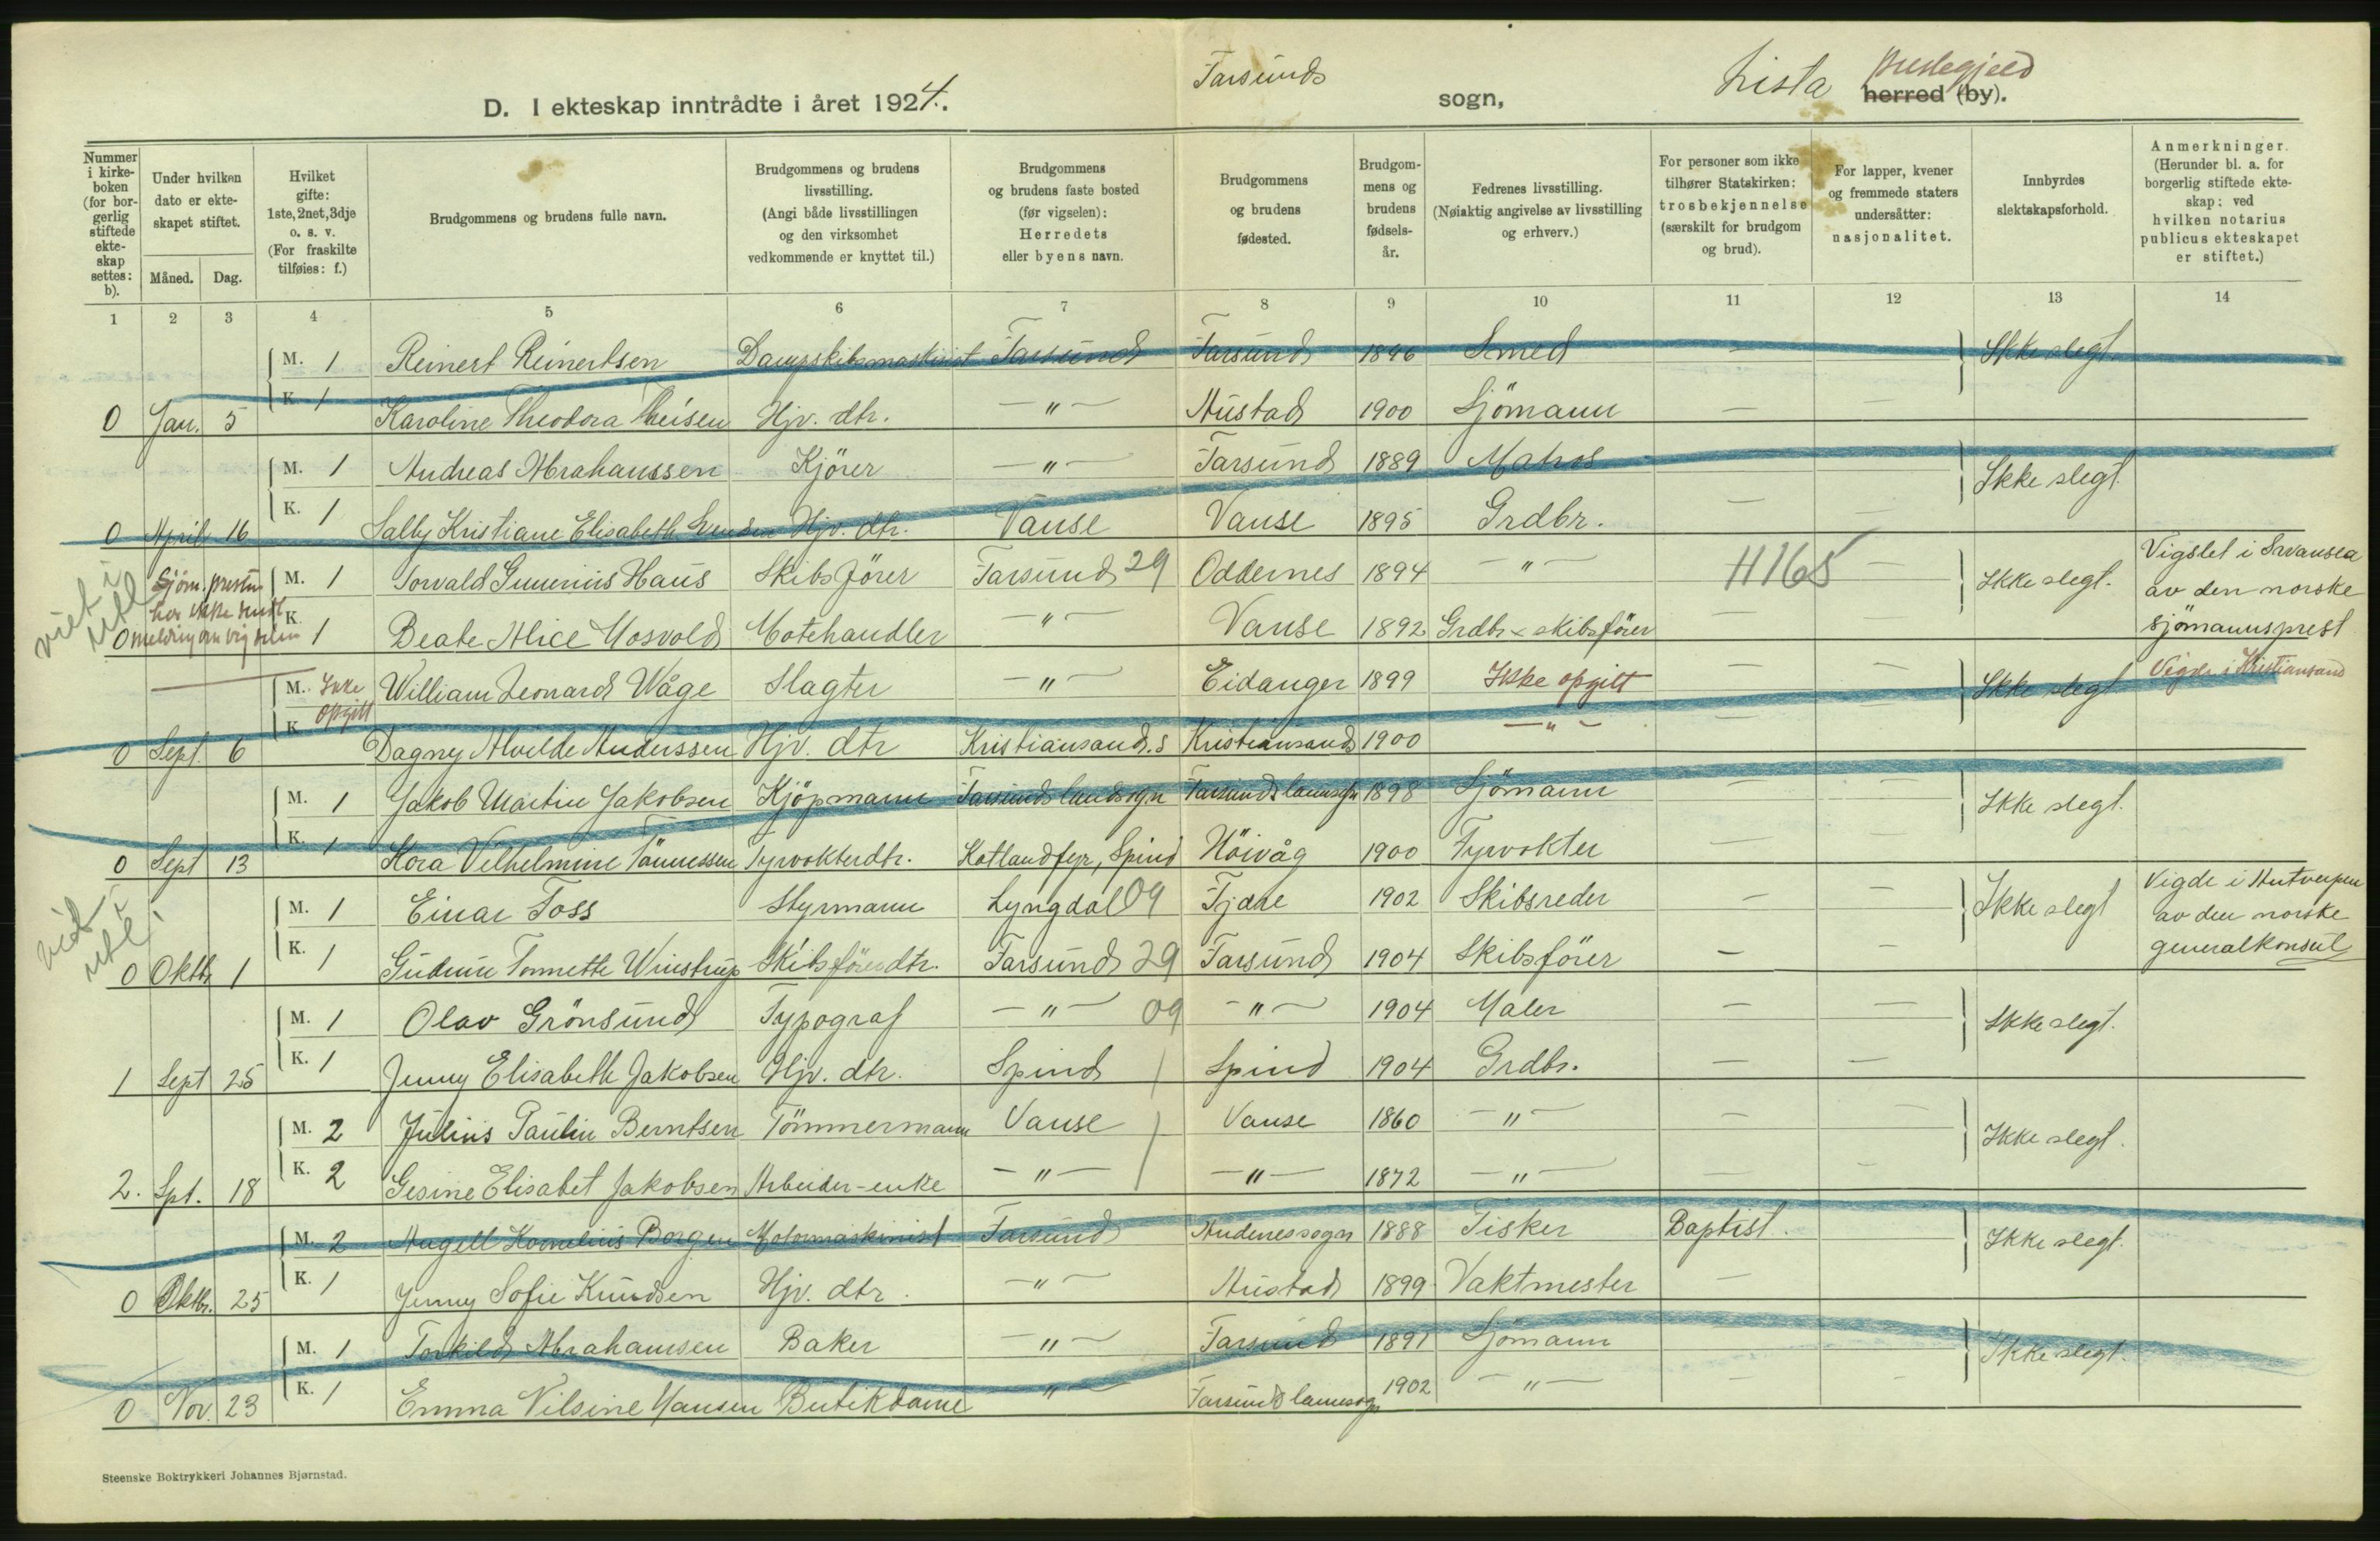 Farsunds
Lista
prestegjeld
D. I ekteskap inntrådte i året 1924.
sogn,
herred (by).
Nummer i kirkeboken (for borgerlig stiftede ekteskap settes: b).
Under hvilken dato er ekteskapet stiftet.
Måned. Dag.
Hvilket gifte: 1ste, 2net, 3dje o. s. v. (For fraskilte tilføies: f.)
Brudgommens og brudens fulle navn.
Brudgommens og brudens livsstilling. (Angi både livsstillingen og den virksomhet vedkommende er knyttet til.)
Brudgommens og brudens faste bosted (før vigselen): Herredets eller byens navn.
Brudgommens og brudens fødested.
Brudgommens og brudens fødselsår.
Fedrenes livsstilling. (Nøiaktig angivelse av livsstilling og erhverv.)
For personer som ikke tilhører Statskirken: trosbekjennelse (særskilt for brudgom og brud).
For lapper, kvener og fremmede staters undersåtter: nasjonalitet.
Innbyrdes slektskapsforhold.
Anmerkninger. (Herunder bl. a. for borgerlig stiftede ekteskap: ved hvilken notarius publicus ekteskapet er stiftet.)
1 2 3 4 5 6 7 8 9 10 11 12 13 14
M. 1 Reinert Reinertsen Dampskibsmaskinist Farsund Farsund 1896 Smed — Ikke slegt.
0 Jan. 5 K. 1 Karoline Theodora Theisen Hjv. dtr. —"— Austad 1900 Sjömann — —
M. 1 Andreas Abrahamsen Kjörer —"— Farsund 1889 Matros — Ikke slegt.
0 April 16 K. 1 Sally Kristiane Elisabeth Hjv. dtr. Vanse Vanse 1895 Grdbr. — —
viet i utl
Sjöm.presten har ikke sendt melding om vigselen
M. 1 Torvald Gunerius Haus Skibsförer Farsund 29 Oddernes 1894 —"— H165 — Ikke slegt. Vigslet i Swansea av den norske sjömannsprest
0 K. 1 Beate Alice Mosvold Motehandler —"— Vanse 1892 Grdbr & skibsförer —
M. Ikke opgitt William Leonard Wåge Slagter —"— Eidanger 1899 Ikke opgitt — — Ikke slegt Vigde i Kristiansand
0 Sept. 6 K. Dagny Alvilde Anderssen Hjv. dtr Kristiansand. S Kristiansand 1900 —"— — —
M. 1 Jakob Martin Jakobsen Kjöpmann Farsunds landsogn Farsunds landsogn 1898 Sjömann — — Ikke slegt.
0 Sept 13 K. 1 Kora Vilhelmine Tönnessen Fyrvokterdtr. Katland fyr, Spind Höivåg 1900 Fyrvokter — —
vid i utl.
M. 1 Einar Foss Styrmann Lyngdal 09 Fjære 1902 Skibsreder — — Ikke slegt Vigde i Antverpen av den norske generalkonsul
0 Oktb 1 K. 1 Gudrun Tonnette Winstrup Skibsförerdtr. Farsund 29 Farsund 1904 Skibsförer — —
M. 1 Olav Grönsund Typograf —"— 09 —"— 1904 Maler — — Ikke slegt.
1 Sept 25 K. 1 Jenny Elisabeth Jakobsen Hjv. dtr. Spind Spind 1904 Grdbr. — —
M. 2 Julius Paulin Berntsen Tömmermann Vanse Vanse 1860 —"— — — Ikke slegt.
2. Spt. 18 K. 2 Gesine Elisabet Jakobsen Arbeider-enke —"— —"— 1872 —"— — —
M. 2 Angell Kornelius Borgen Motormaskinist Farsund Andenes sogn 1888 Fisker Baptist. — Ikke slegt.
0 Oktbr. 25 K. 1 Jenny Sofie Knudsen Hjv. dtr. —"— Austad 1899 Vaktmester —
M. 1 Torkild Abrahamsen Baker —"— Farsund 1891 Sjömann — — Ikke slegt.
0 Nov. 23 K. 1 Emma Nilsine Hansen Butikdame —"— Farsunds landsogn 1902 —"— — —
Steenske Boktrykkeri Johannes Bjørnstad.